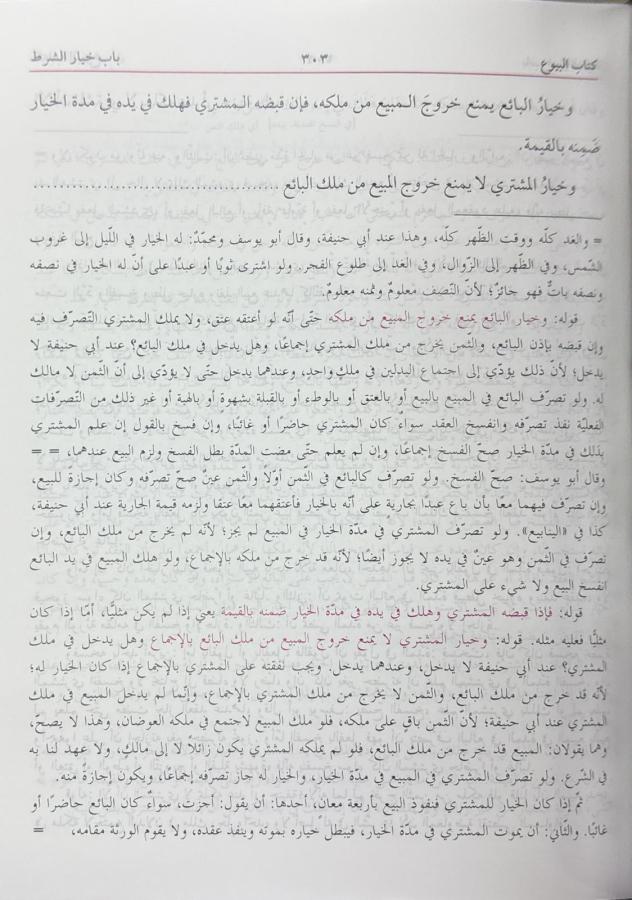 كتاب البيوع ٣٠٣ باب خيار الشرط
وخيارُ البائع يمنع خروجَ المبيع من ملكه، فإن قبضه المشتري فهلك في يده في مدة الخيار
ضَمِنه بالقيمة.
وخيارُ المشتري لا يمنع خروج المبيع من ملك البائع ........................................
= والغد كلّه ووقت الظّهر كلّه، وهذا عند أبي حنيفة، وقال أبو يوسف ومحمّد: له الخيار في اللّيل إلى غروب
الشّمس، وفي الظّهر إلى الزّوال، وفي الغد إلى طلوع الفجر. ولو اشترى ثوبًا أو عبدًا على أنّ له الخيار في نصفه
ونصفه باتٌّ فهو جائزٌ؛ لأنّ النّصف معلومٌ وثمنه معلومٌ.
قوله: وخيار البائع يمنع خروج المبيع من ملكه حتّى أنّه لو أعتقه عتق، ولا يملك المشتري التّصرّف فيه
وإن قبضه بإذن البائع، والثّمن يخرج من ملك المشتري إجماعًا، وهل يدخل في ملك البائع؟ عند أبي حنيفة لا
يدخل؛ لأنّ ذلك يؤدّي إلى اجتماع البدلين في ملكٍ واحدٍ، وعندهما يدخل حتّى لا يؤدّي إلى أنّ الثّمن لا مالك
له. ولو تصرّف البائع في المبيع بالبيع أو بالعتق أو بالوطء أو بالقبلة بشهوةٍ أو بالهبة أو غير ذلك من التّصرّفات
الفعليّة نفذ تصرّفه وانفسخ العقد سواءٌ كان المشتري حاضرًا أو غائبًا، وإن فسخ بالقول إن علم المشتري
بذلك في مدّة الخيار صحّ الفسخ إجماعًا، وإن لم يعلم حتّى مضت المدّة بطل الفسخ ولزم البيع عندهما، = =
وقال أبو يوسف: صحّ الفسخ. ولو تصرّف كالبائع في الثّمن أوّلاً والثّمن عينٌ صحّ تصرّفه وكان إجازةً للبيع،
وإن تصرّف فيهما معًا بأن باع عبدًا بجارية على أنّه بالخيار فأعتقهما معًا عتقا ولزمه قيمة الجارية عند أبي حنيفة،
كذا في «الينابيع». ولو تصرّف المشتري في مدّة الخيار في المبيع لم يجز؛ لأنّه لم يخرج من ملك البائع، وإن
تصرّف في الثّمن وهو عينٌ في يده لا يجوز أيضًا؛ لأنّه قد خرج من ملكه بالإجماع، ولو هلك المبيع في يد البائع
انفسخ البيع ولا شيء على المشتري.
قوله: فإذا قبضه المشتري وهلك في يده في مدّة الخيار ضمنه بالقيمة يعني إذا لم يكن مثليًّا، أمّا إذا كان
مثليًّا فعليه مثله. قوله: وخيار المشتري لا يمنع خروج المبيع من ملك البائع بالإجماع وهل يدخل في ملك
المشتري؟ عند أبي حنيفة لا يدخل، وعندهما يدخل. ويجب نفقته على المشتري بالإجماع إذا كان الخيار له؛
لأنّه قد خرج من ملك البائع، والثّمن لا يخرج من ملك المشتري بالإجماع، وإنّما لم يدخل المبيع في ملك
المشتري عند أبي حنيفة؛ لأنّ الثّمن باقٍ على ملكه، فلو ملك المبيع لاجتمع في ملكه العوضان، وهذا لا يصحّ،
وهما يقولان: المبيع قد خرج من ملك البائع، فلو لم يملكه المشتري يكون زائلاً لا إلى مالكٍ، ولا عهد لنا به
في الشّرع. ولو تصرّف المشتري في المبيع في مدّة الخيار، والخيار له جاز تصرّفه إجماعًا، ويكون إجازةً منه.
ثمّ إذا كان الخيار للمشتري فنفوذ البيع بأربعة معانٍ، أحدها: أن يقول: أجزت، سواءٌ كان البائع حاضرًا أو
غائبًا. والثّاني: أن يموت المشتري في مدّة الخيار، فيبطل خياره بموته وينفذ عقده، ولا يقوم الورثة مقامه، =